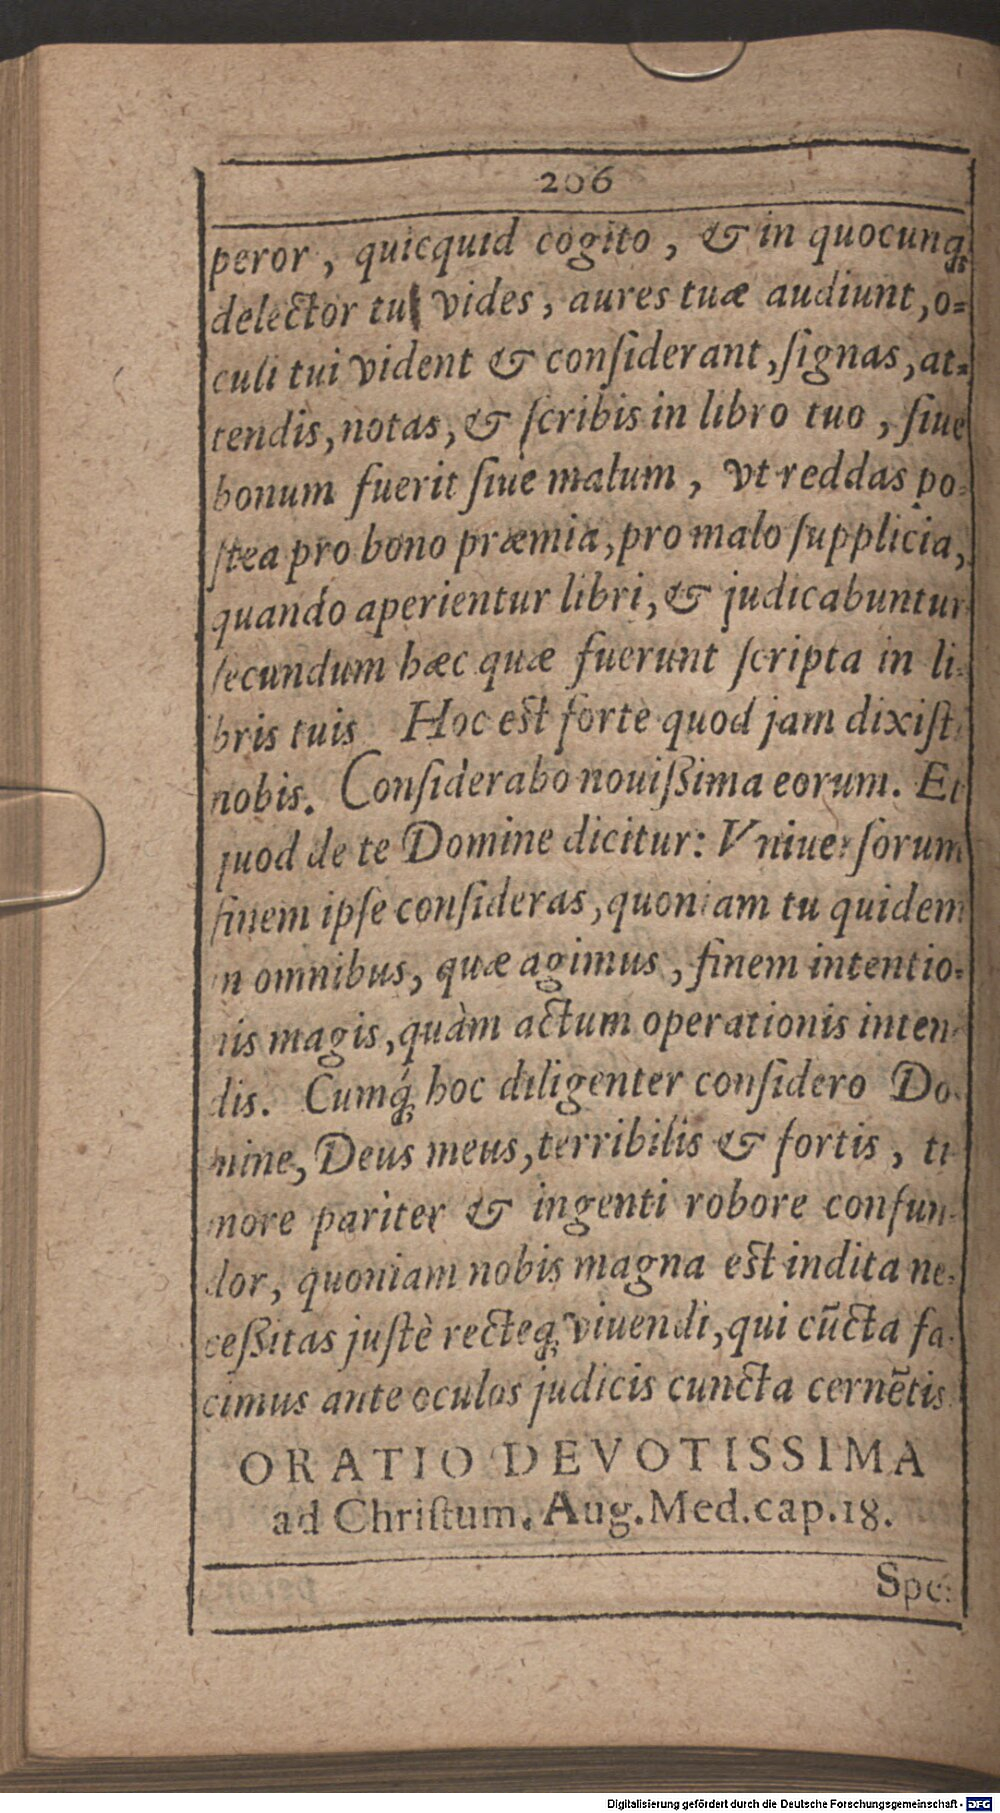 206
peror, quicquid cogito, & in quocunq;
delector tu vides, aures tuæ audiunt, o=
culi tui vident & conſiderant, ſignas, at=
tendis, notas, & ſcribis in libro tuo, ſiue
bonum fuerit ſiue malum, vt reddas po-
ſtea pro bono præmia, pro malo ſupplicia,
quando aperientur libri, & judicabuntur
ſecundum hæc quæ fuerunt ſcripta in li-
bris tuis Hoc eſt forte quod jam dixiſt
nobis. Conſiderabo nouiſſima eorum. Et
quod de te Domine dicitur: Vniuerſorum
finem ipſe conſideras, quoniam tu quidem
in omnibus, quæ agimus, finem intentio=
nis magis, quàm actum operationis inten-
dis. Cumq́; hoc diligenter conſidero Do-
mine, Deus meus, terribilis & fortis, ti
more pariter & ingenti robore confun-
dor, quoniam nobis magna eſt indita ne-
ceſſitas juſtè recteq; viuendi, qui cūcta fa-
cimus ante oculos judicis cuncta cernētis
ORATIO DEVOTISSIMA
ad Chriſtum. Aug. Med. cap. 18.
Spe:
Digitalisierung gefördert durch die Deutsche Forschungsgemeinschaft - DFG